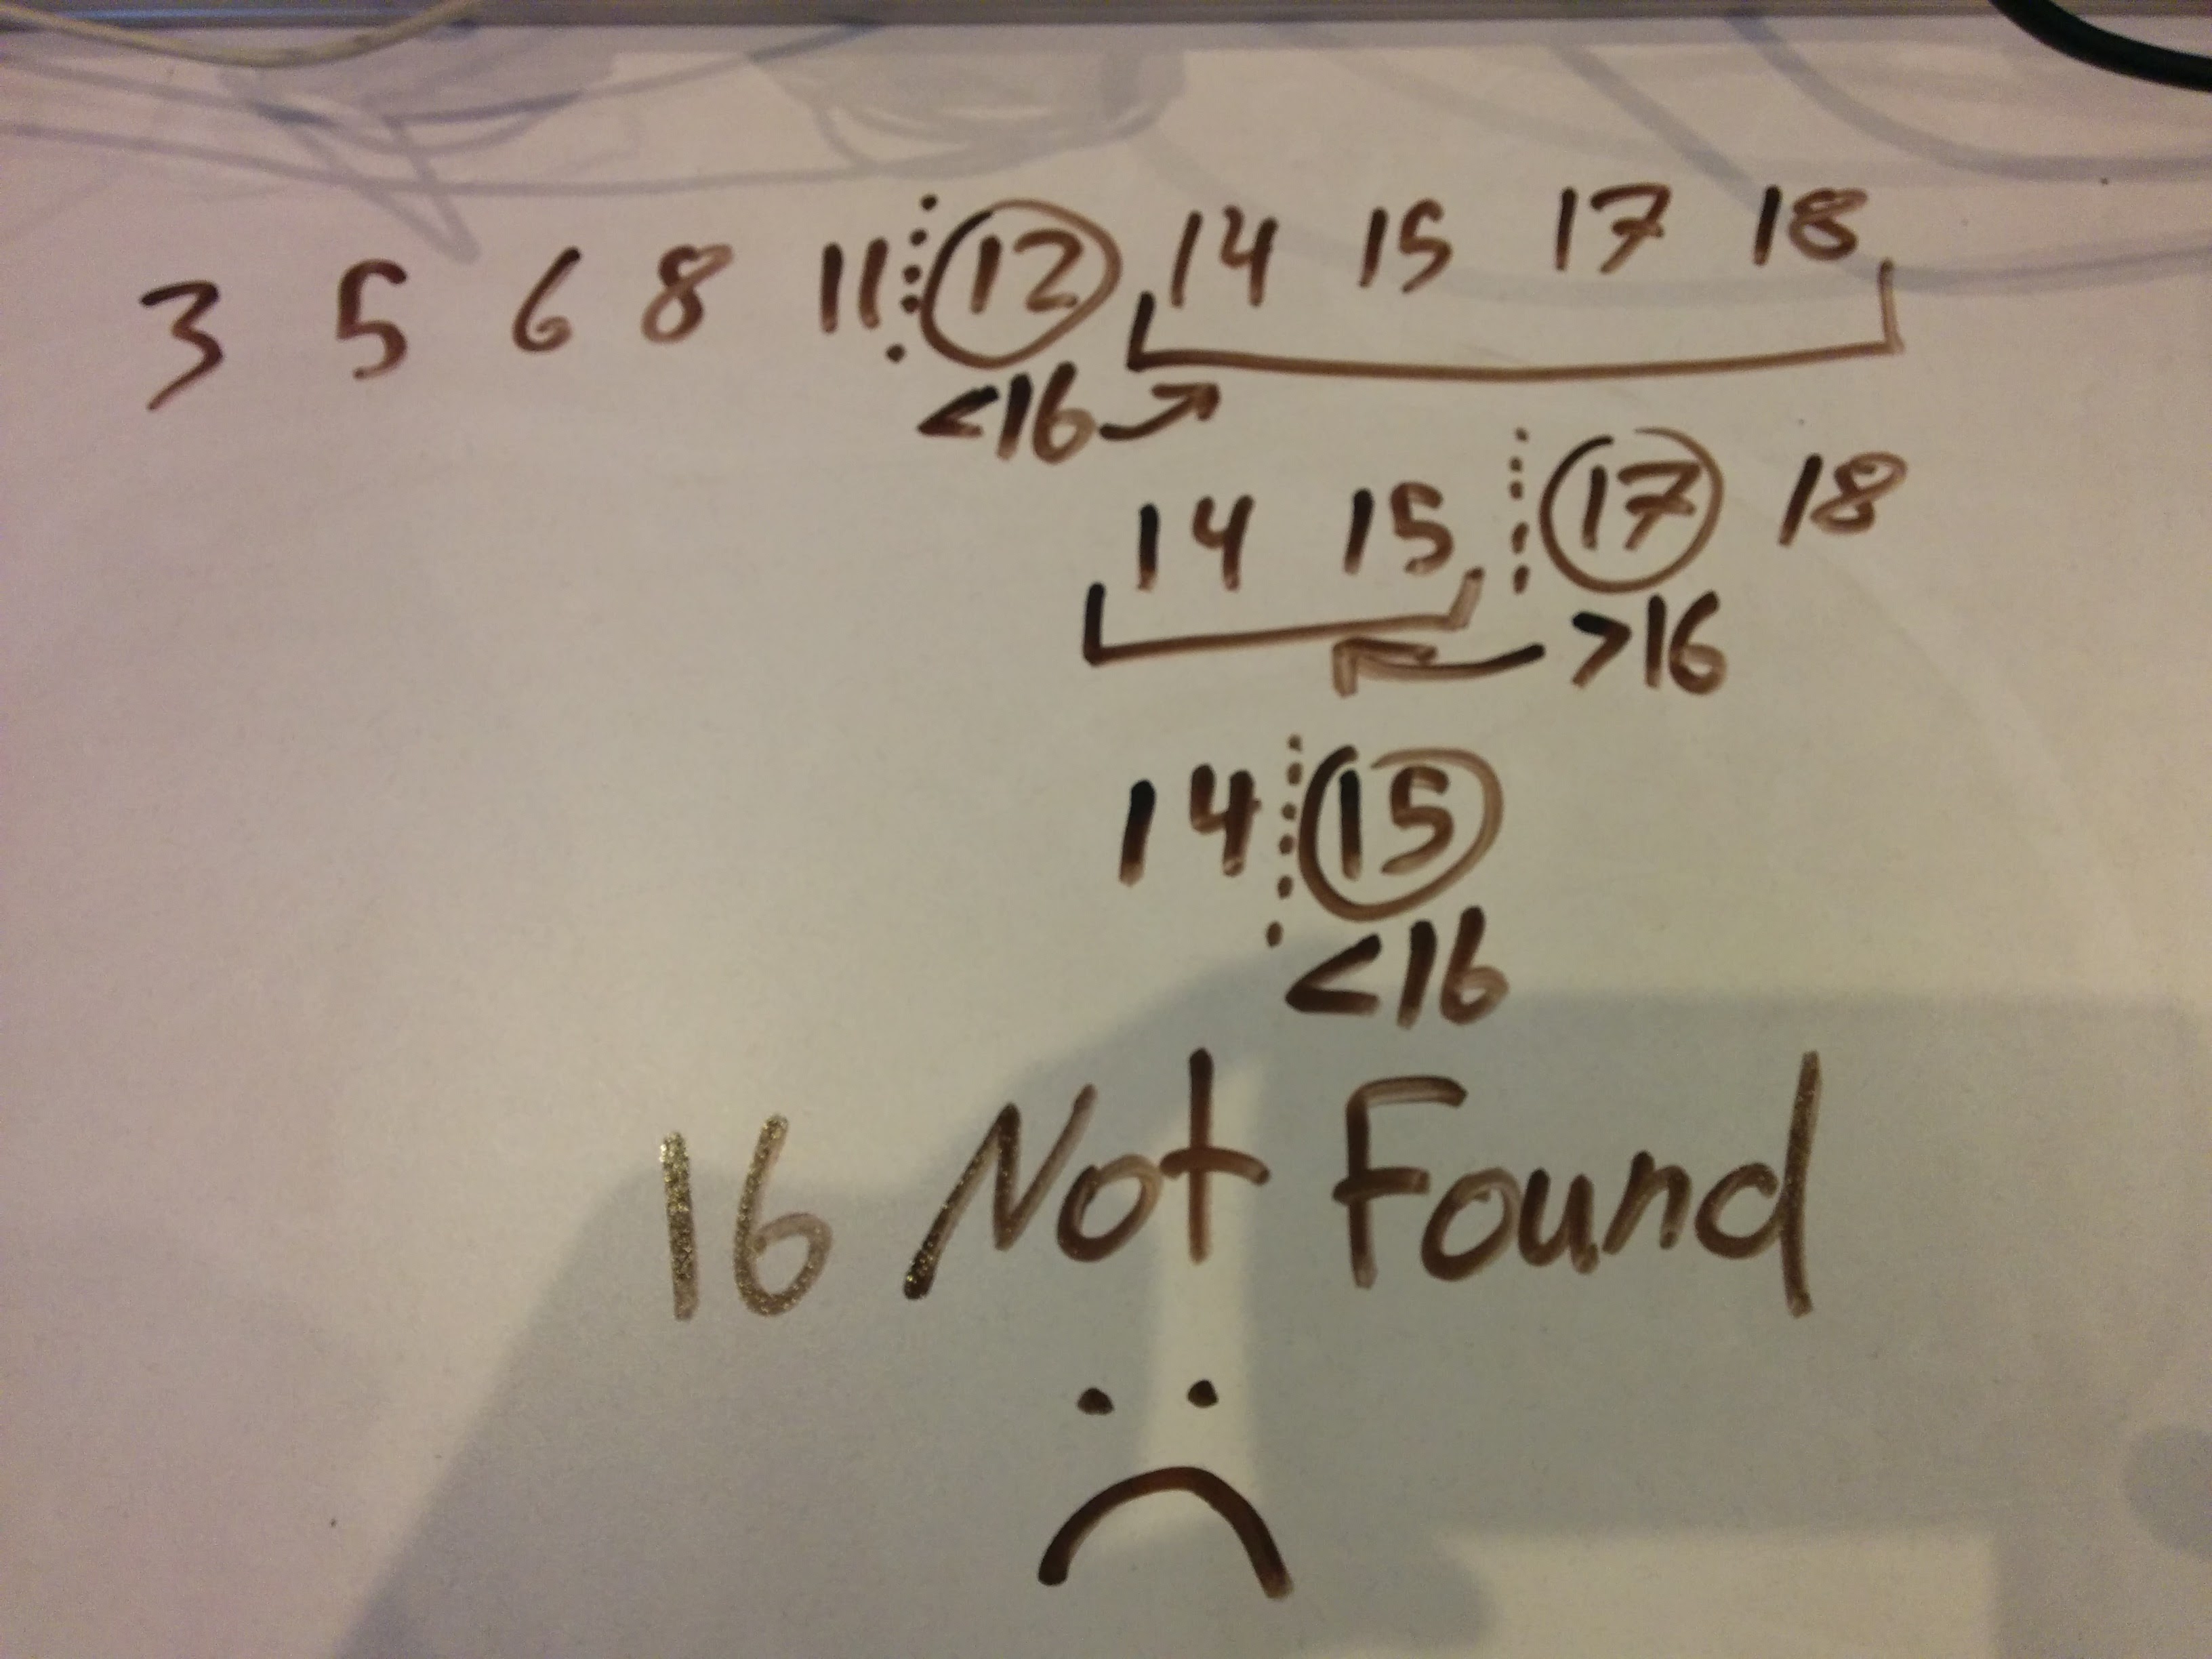 3 5 6 8 11 12 14 15 17 18
<16
14 15 17 18
>16
14 15
<16
16 Not Found